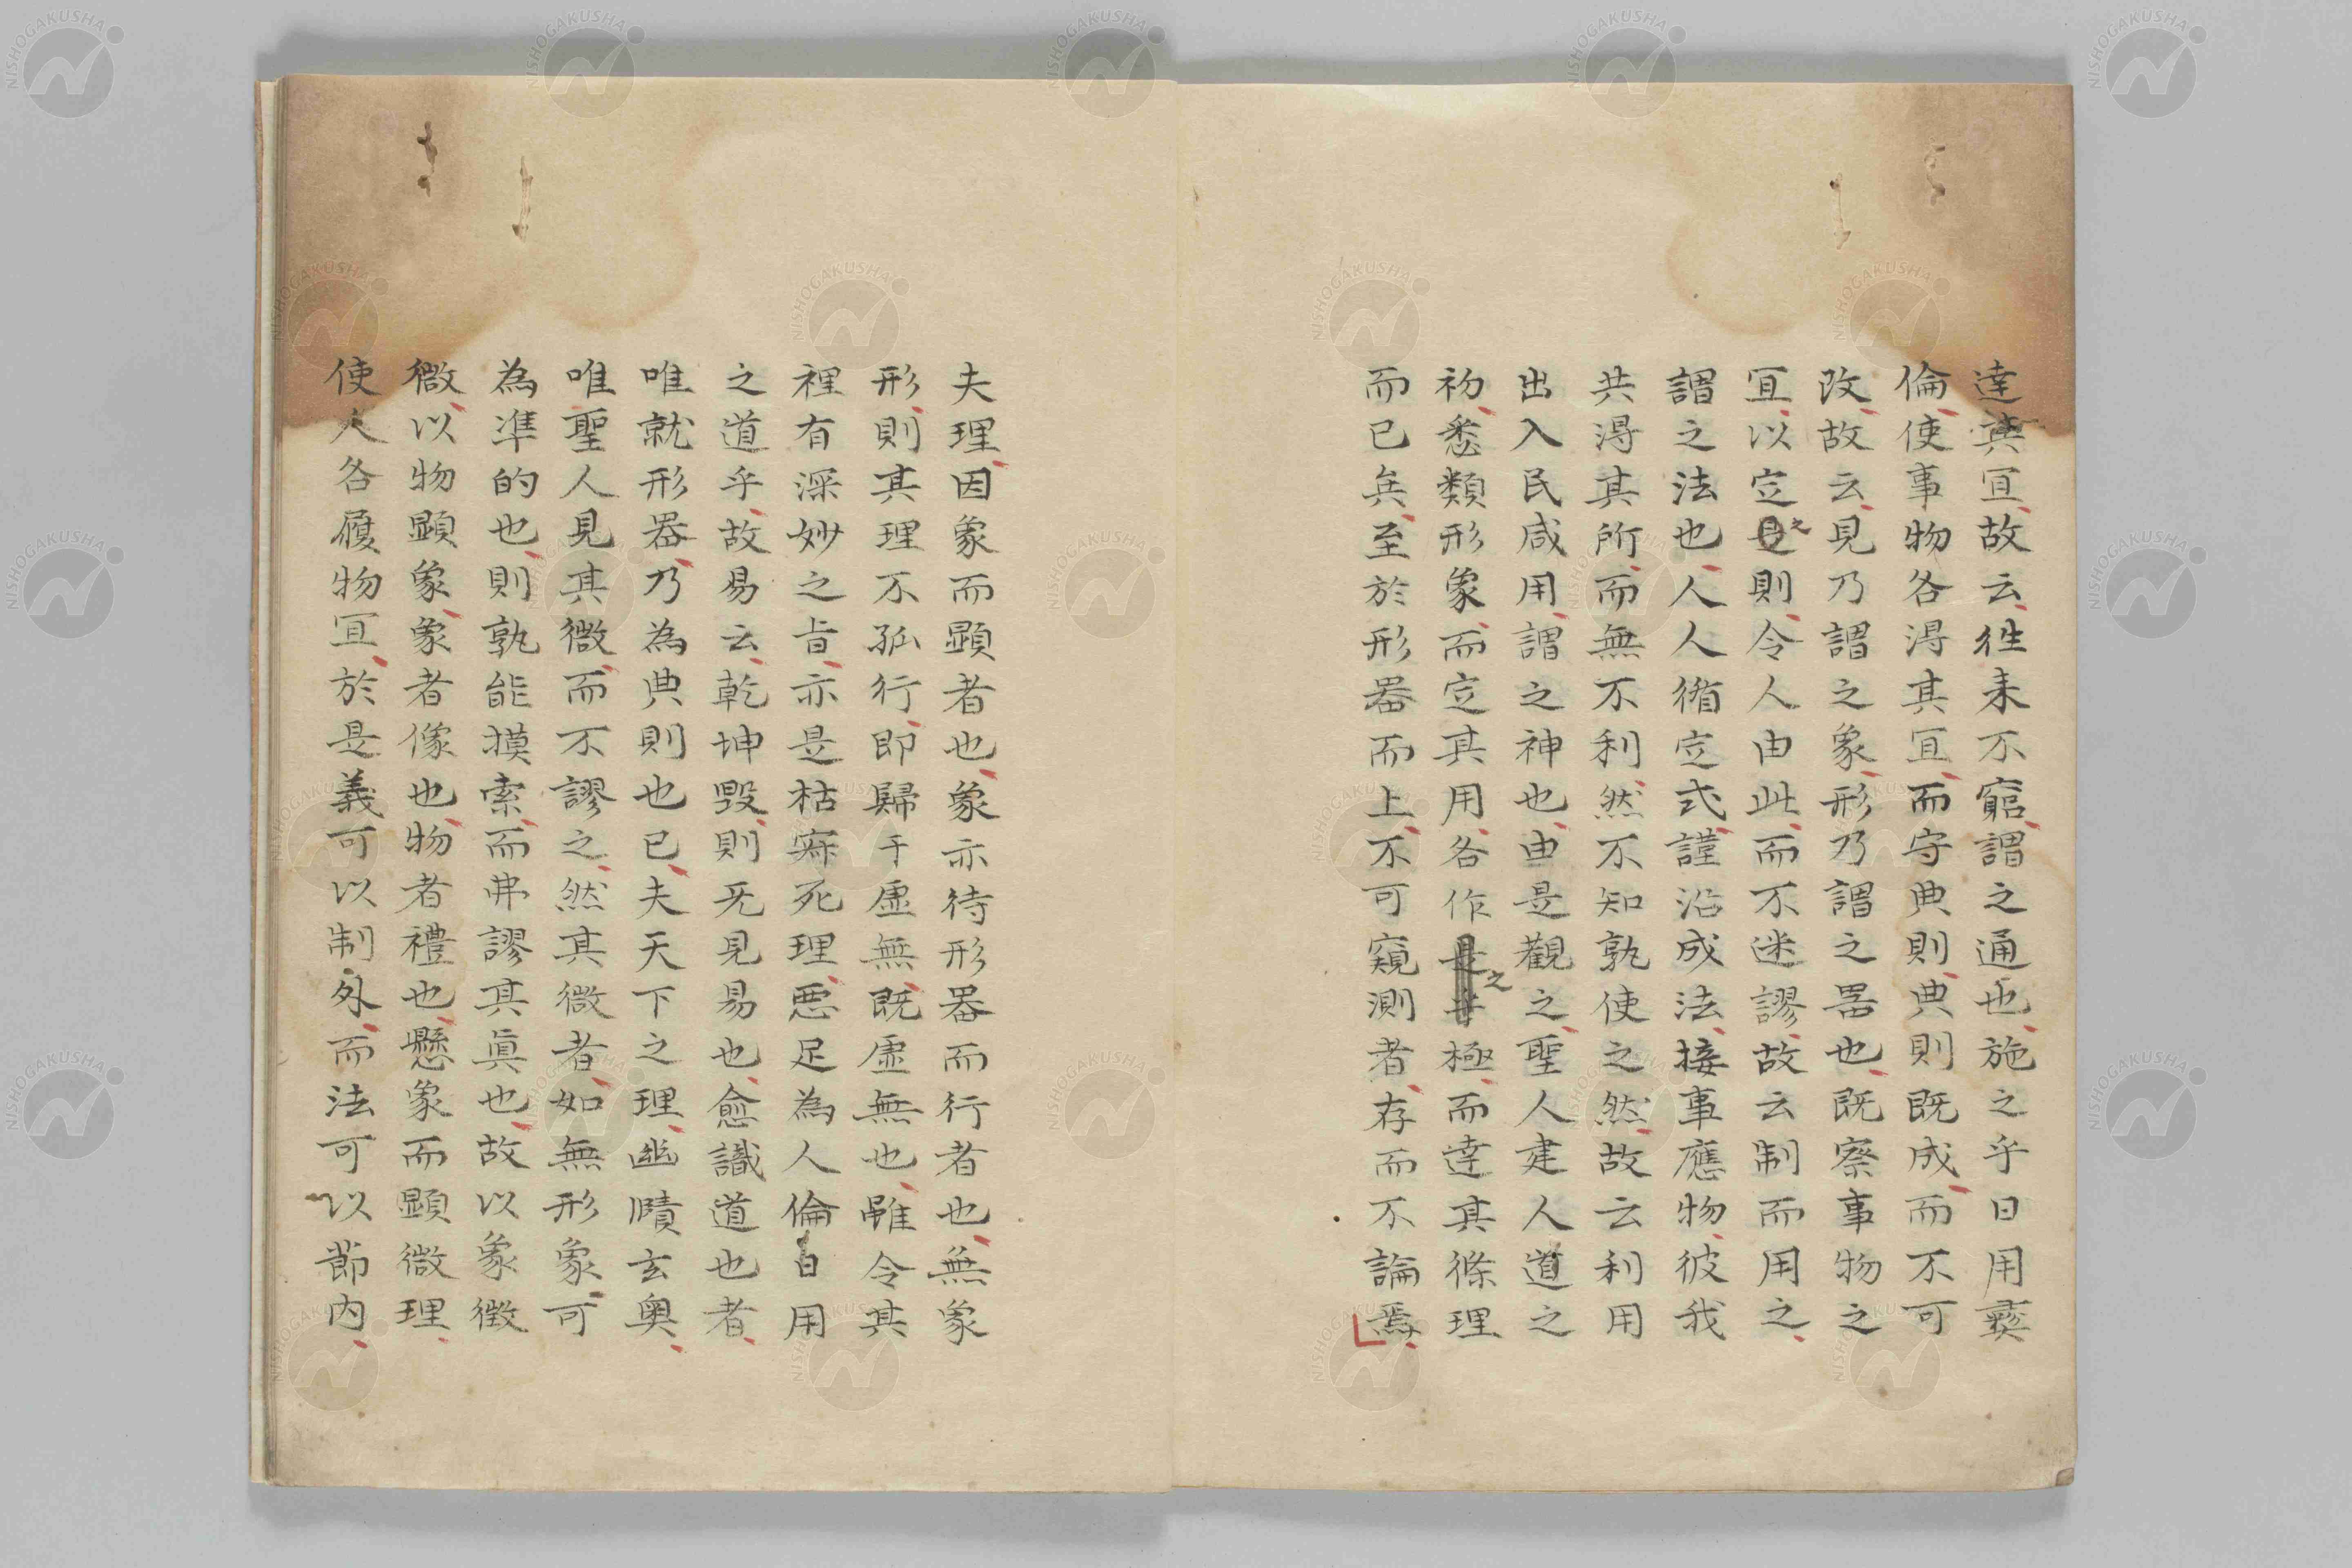 達其宜故云徃来不窮謂之通也施之乎日用彛
倫使事物各得其宜而守典則典則既成而不可
改故云見乃謂之象形乃謂之器也既察事物之
宜以定之則令人由此而不迷謬故云制而用之
謂之法也人人循定式謹沿成法接事應物彼我
共得其所而無不利然不知孰使之然故云利用
出入民咸用謂之神也由是觀之聖人建人道之
初悉類形象而定其用各作之極而達其條理
而已矣至於形器而上不可窺測者存而不論焉
夫理因象而顕者也象亦待形器而行者也無象
形則其理不孤行即歸于虚無既虚無也雖令其
裡有深妙之旨亦是枯寂死理悪足為人倫日用
之道乎故易云乾坤毀則旡見易也愈識道也者
唯就形器乃為典則也已夫天下之理幽賾玄奥
唯聖人見其微而不謬之然其微者如無形象可
為準的也則孰能摸索而弗謬其眞也故以象徴
微以物顕象象者像也物者禮也懸象而顕微理
使人各履物宜於是義可以制外而法可以節内
NISHOGAKUSHA